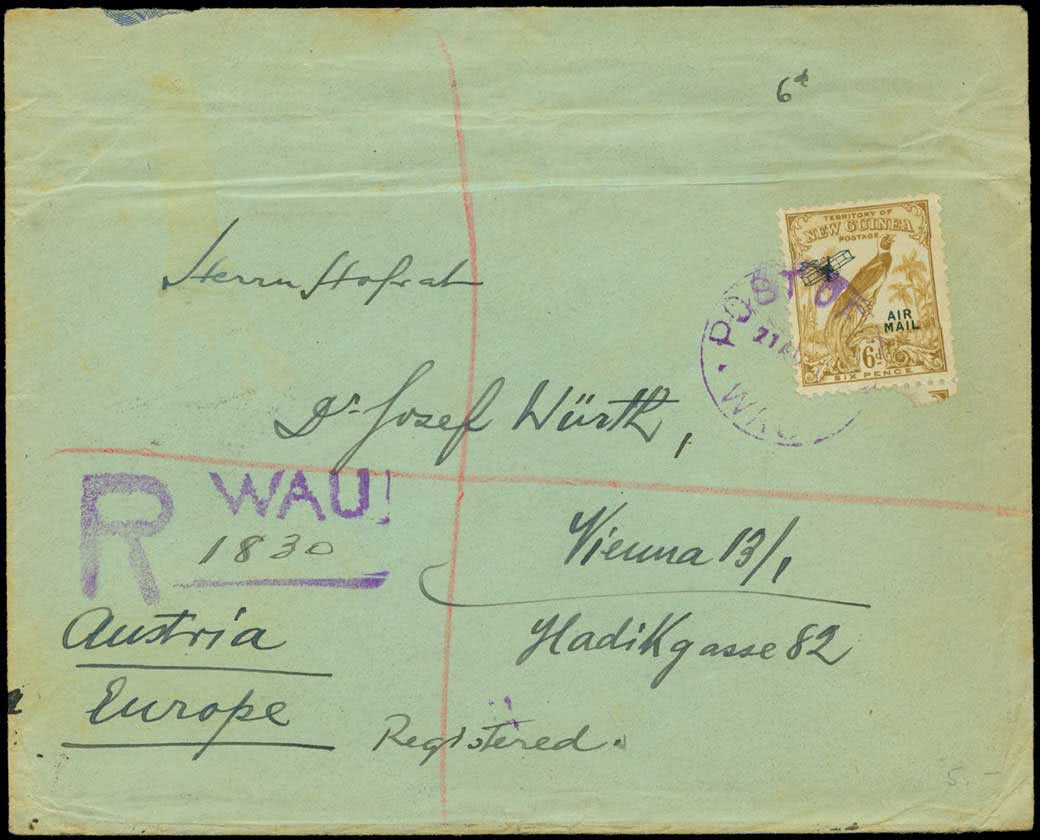 6d
TERRITORY OF
NEW GUINEA
POSTAGE
AIR
MAIL
6d
SIX PENCE
POST OF
21 AU
Herrn Hofrat
Dr Josef Würth,
R WAU
1830
Vienna 13/1
Hadikgasse 82
Austria
Europe
Registered.
5.-